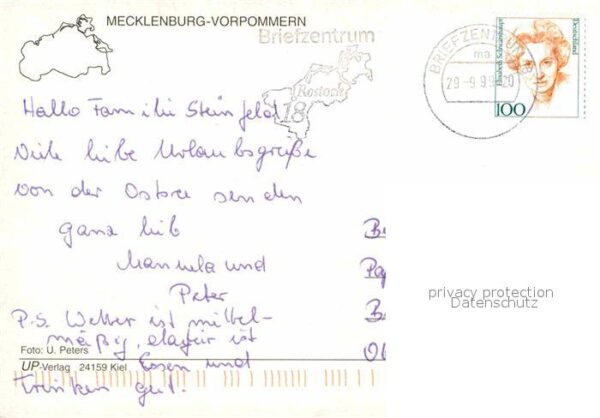 MECKLENBURG-VORPOMMERN
Briefzentrum
Rostock
18
BRIEFZENTRUM
ma
29-9.99-20
Elisabeth Schwarzhaupt
Deutschland
100
Hallo Familie Steinfeld
Viele liebe Urlaubsgrüße
von der Ostsee senden
ganz lieb
Manuela und
Peter
P.S. Wetter ist mittel-
mäßig, dafür ist
Essen und
Trinken gut.
Foto: U. Peters
UP-Verlag 24159 Kiel
privacy protection
Datenschutz